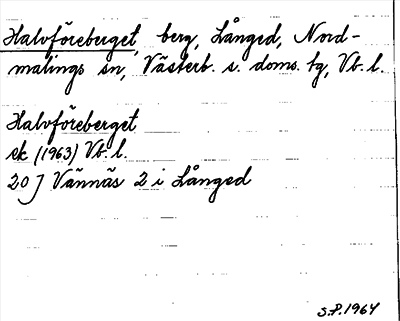 Halvföreberget, berg, Långed, Nord-
malings sn, Västerb. s. doms. tg, Vb. l.
Halvföreberget
ek (1963) Vb. l.
20 J Vännäs 2 i Långed
S.P. 1964